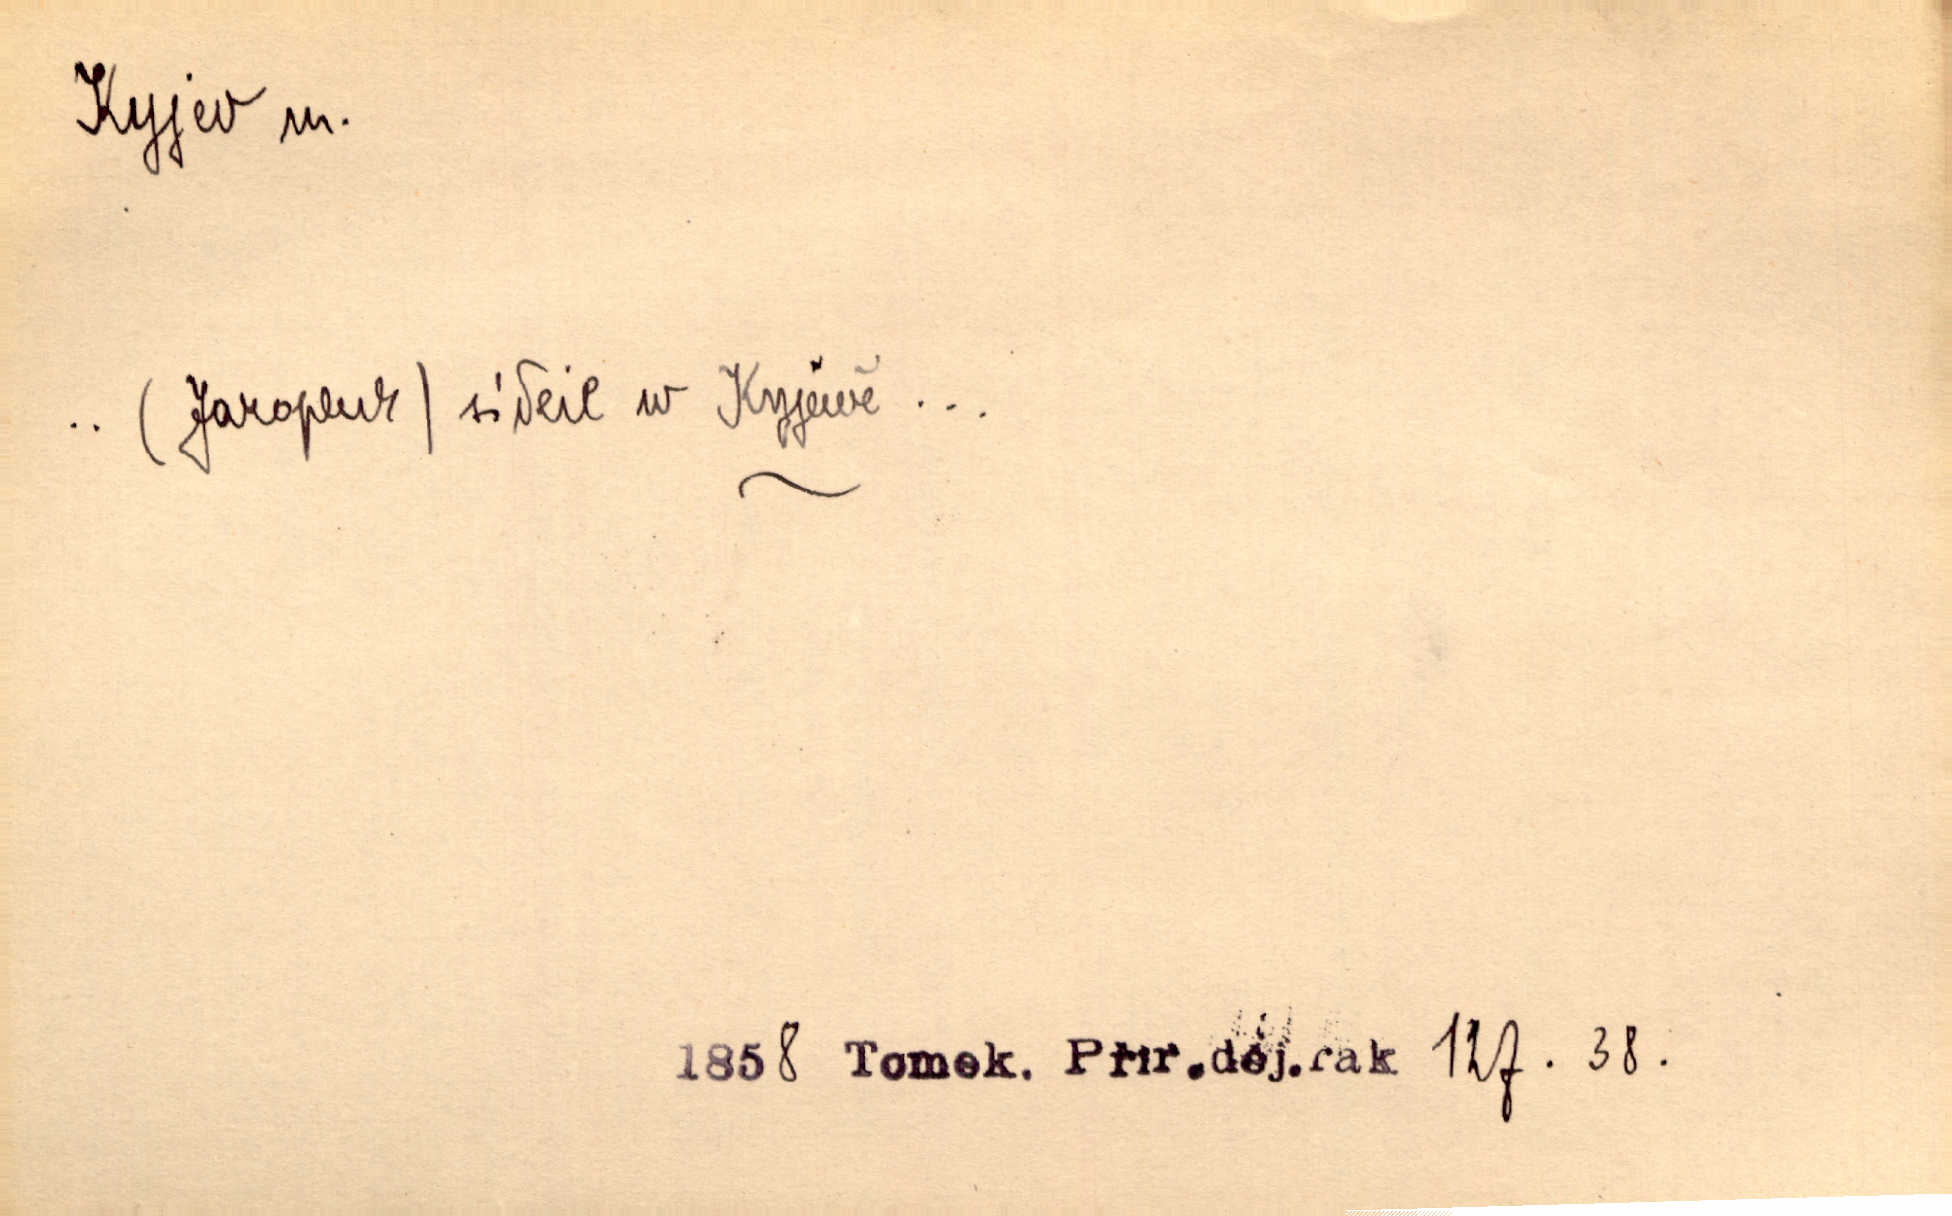 Kyjev m.
.. (Jaropluk) sídeil w Kyjewě ...
1858 Tomek. Přír.děj.rak 127. 38.